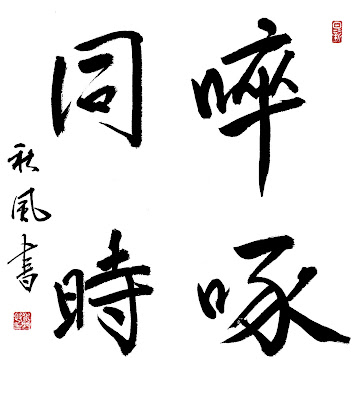 啐啄
同時
秋風書